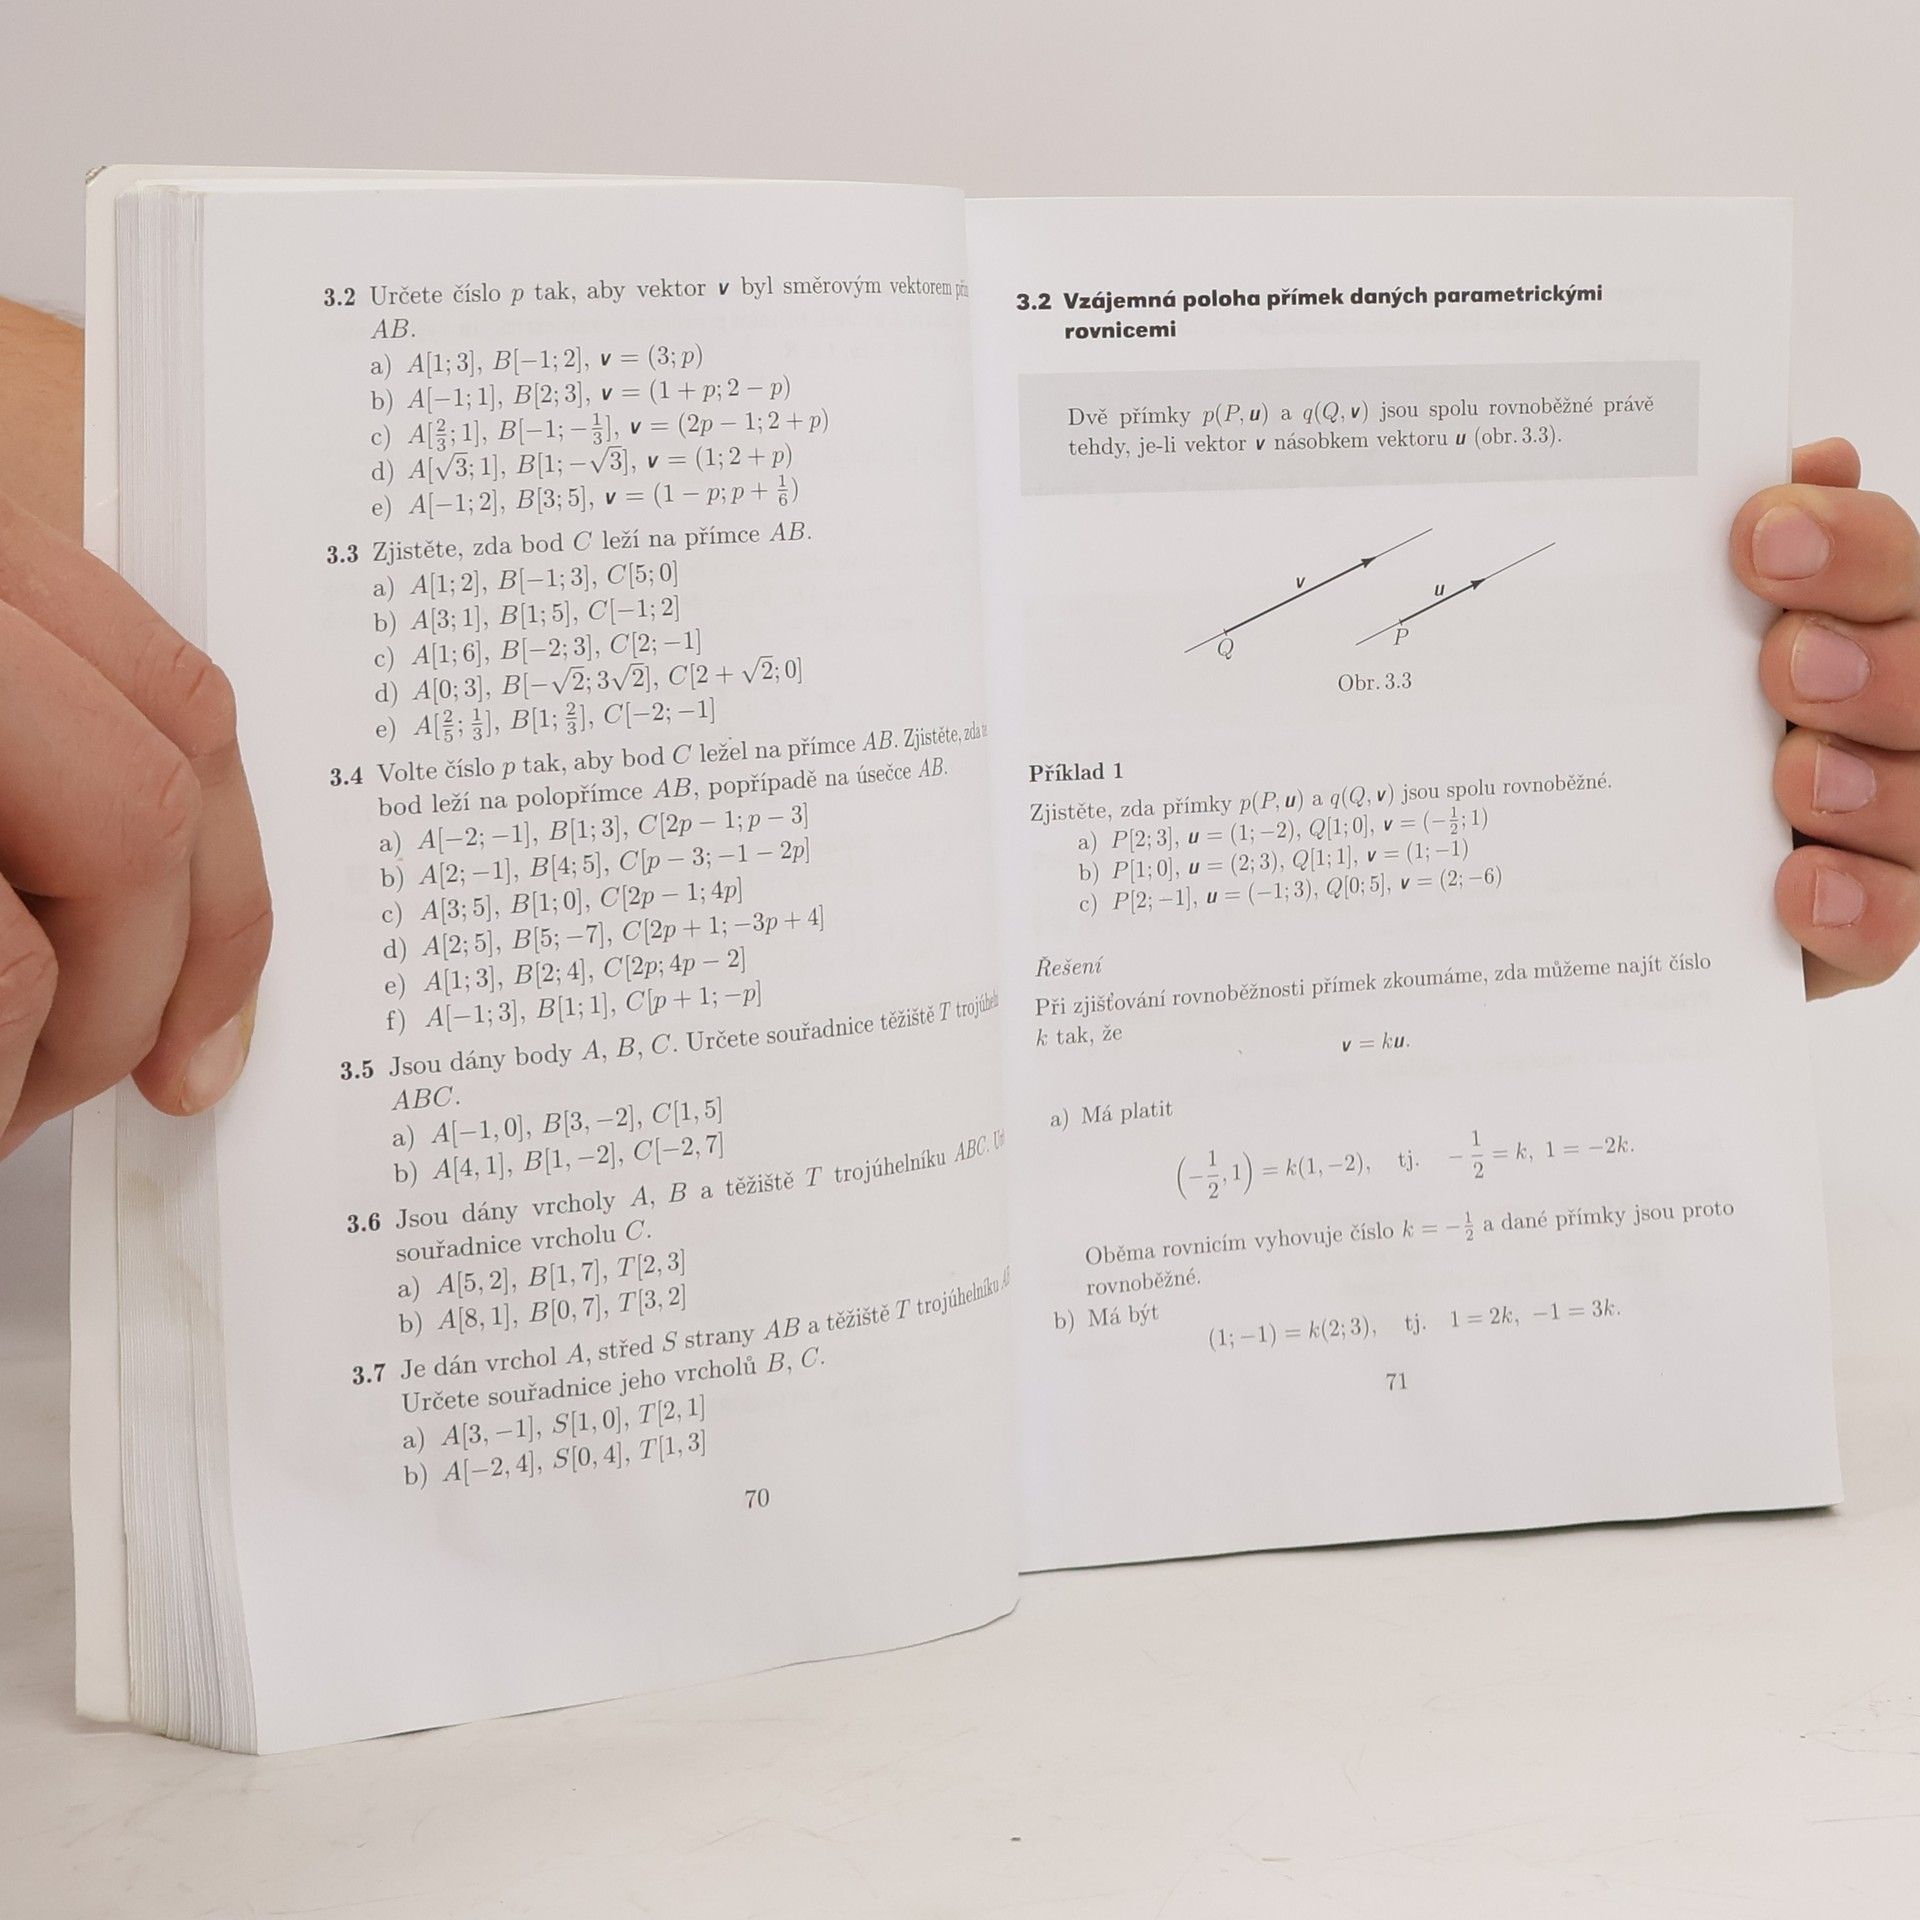 3.2 Určete číslo p tak, aby vektor v byl směrovým vektorem
AB.
a) A[1; 3], B[−1; 2], v = (3; p)
b) A[−1; 1], B[2; 3], v = (1 + p; 2 − p)
c) A[2/3; 1], B[−1; −1/3], v = (2p − 1; 2 + p)
d) A[√3; 1], B[1; −√3], v = (1; 2 + p)
e) A[−1; 2], B[3; 5], v = (1 − p; p + 1/6)
3.3 Zjistěte, zda bod C leží na přímce AB.
a) A[1; 2], B[−1; 3], C[5; 0]
b) A[3; 1], B[1; 5], C[−1; 2]
c) A[1; 6], B[−2; 3], C[2; −1]
d) A[0; 3], B[−√2; 3√2], C[2 + √2; 0]
e) A[2/5; 1/3], B[1; 2/3], C[−2; −1]
3.4 Volte číslo p tak, aby bod C ležel na přímce AB. Zjistěte, zda
bod leží na polopřímce AB, popřípadě na úsečce AB.
a) A[−2; −1], B[1; 3], C[2p − 1; p − 3]
b) A[2; −1], B[4; 5], C[p − 3; −1 − 2p]
c) A[3; 5], B[1; 0], C[2p − 1; 4p]
d) A[2; 5], B[5; −7], C[2p + 1; −3p + 4]
e) A[1; 3], B[2; 4], C[2p; 4p − 2]
f) A[−1; 3], B[1; 1], C[p + 1; −p]
3.5 Jsou dány body A, B, C. Určete souřadnice těžiště T
ABC.
a) A[−1, 0], B[3, −2], C[1, 5]
b) A[4, 1], B[1, −2], C[−2, 7]
3.6 Jsou dány vrcholy A, B a těžiště T trojúhelníku ABC.
souřadnice vrcholu C.
a) A[5, 2], B[1, 7], T[2, 3]
b) A[8, 1], B[0, 7], T[3, 2]
3.7 Je dán vrchol A, střed S strany AB a těžiště T trojúhelníku
Určete souřadnice jeho vrcholů B, C.
a) A[3, −1], S[1, 0], T[2, 1]
b) A[−2, 4], S[0, 4], T[1, 3]
70
3.2 Vzájemná poloha přímek daných parametrickými
rovnicemi
Dvě přímky p(P, u) a q(Q, v) jsou spolu rovnoběžné právě
tehdy, je-li vektor v násobkem vektoru u (obr. 3.3).
v
u
Q
P
Obr. 3.3
Příklad 1
Zjistěte, zda přímky p(P, u) a q(Q, v) jsou spolu rovnoběžné.
a) P[2; 3], u = (1; −2), Q[1; 0], v = (−1/2; 1)
b) P[1; 0], u = (2; 3), Q[1; 1], v = (1; −1)
c) P[2; −1], u = (−1; 3), Q[0; 5], v = (2; −6)
Řešení
Při zjišťování rovnoběžnosti přímek zkoumáme, zda můžeme najít číslo
k tak, že
v = ku.
a) Má platit
(−1/2, 1) = k(1, −2), tj. −1/2 = k, 1 = −2k.
Oběma rovnicím vyhovuje číslo k = −1/2 a dané přímky jsou proto
rovnoběžné.
b) Má být
(1; −1) = k(2; 3), tj. 1 = 2k, −1 = 3k.
71